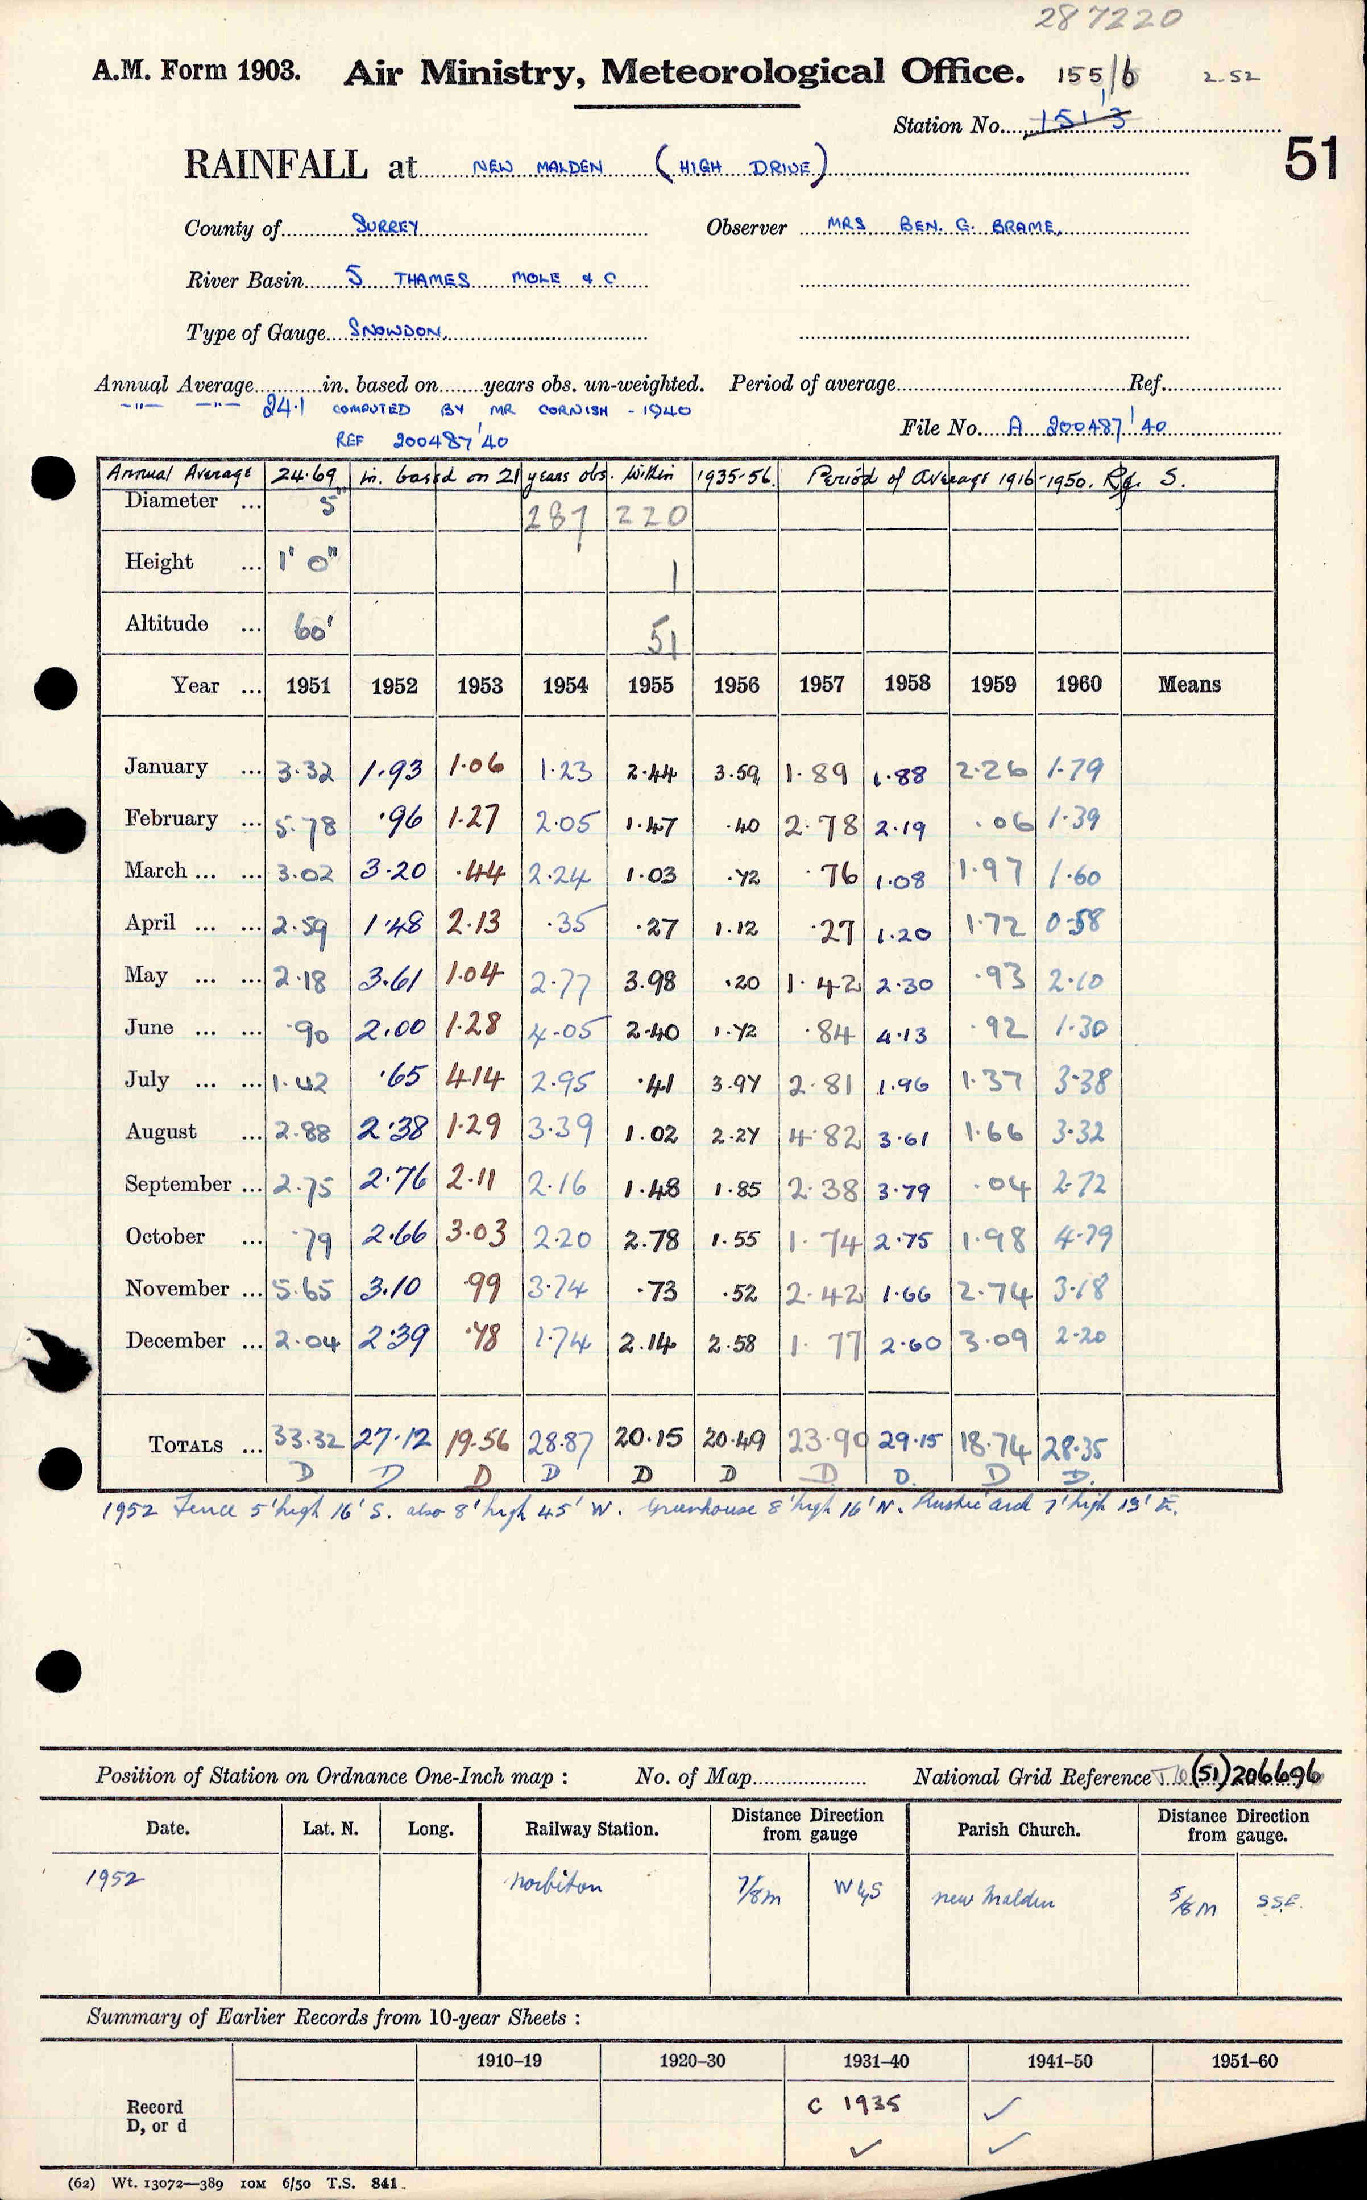 287220
A.M. Form 1903. Air Ministry, Meteorological Office. 155/6 2.52
Station No. 151/3
51
RAINFALL at NEW MALDEN (HIGH DRIVE)
County of SURREY Observer MRS BEN. G. BRAME.
River Basin 5 THAMES MOLE & C
Type of Gauge SNOWDON.
Annual Average in. based on years obs. un-weighted. Period of average Ref.
—"— —"— 24.1 COMPUTED BY MR CORNISH - 1940
REF 200487/40 File No. A 200487/40
Annual Average 24.69 in. based on 21 years obs. within 1935-56. Period of average 1916-1950. Ref. S.
Diameter ... 5" 287 220
Height ... 1' 0" 1
Altitude ... 60' 51
Year ... 1951 1952 1953 1954 1955 1956 1957 1958 1959 1960 Means
January ... 3.32 1.93 1.06 1.23 2.44 3.59 1.89 1.88 2.26 1.79
February ... 5.78 .96 1.27 2.05 1.47 .40 2.78 2.19 .06 1.39
March ... ... 3.02 3.20 .44 2.24 1.03 .72 .76 1.08 1.97 1.60
April ... ... 2.59 1.48 2.13 .35 .27 1.12 .27 1.20 1.72 0.58
May ... ... 2.18 3.61 1.04 2.77 3.98 .20 1.42 2.30 .93 2.10
June ... ... .90 2.00 1.28 4.05 2.40 1.72 .84 4.13 .92 1.30
July ... ... 1.42 .65 4.14 2.95 .41 3.97 2.81 1.96 1.37 3.38
August ... 2.88 2.38 1.29 3.39 1.02 2.27 4.82 3.61 1.66 3.32
September ... 2.75 2.76 2.11 2.16 1.48 1.85 2.38 3.79 .04 2.72
October ... .79 2.66 3.03 2.20 2.78 1.55 1.74 2.75 1.98 4.79
November ... 5.65 3.10 .99 3.74 .73 .52 2.42 1.66 2.74 3.18
December ... 2.04 2.39 .78 1.74 2.14 2.58 1.77 2.60 3.09 2.20
TOTALS ... 33.32 27.12 19.56 28.87 20.15 20.49 23.90 29.15 18.74 28.35
D D D D D D D D. D D.
1952 Fence 5' high 16' S. also 8' high 45' W. Greenhouse 8' high 16' N. Rustic arch 7' high 13' E.
Position of Station on Ordnance One-Inch map : No. of Map National Grid Reference (51)206696
Date. Lat. N. Long. Railway Station. Distance from gauge Direction Parish Church. Distance from gauge. Direction
1952 Norbiton 7/8m W by S New Malden 5/8m S.S.E.
Summary of Earlier Records from 10-year Sheets :
1910–19 1920–30 1931–40 1941–50 1951–60
Record C 1935 ✓
D, or d ✓ ✓
(62) Wt. 13072—389 10M 6/50 T.S. 841.